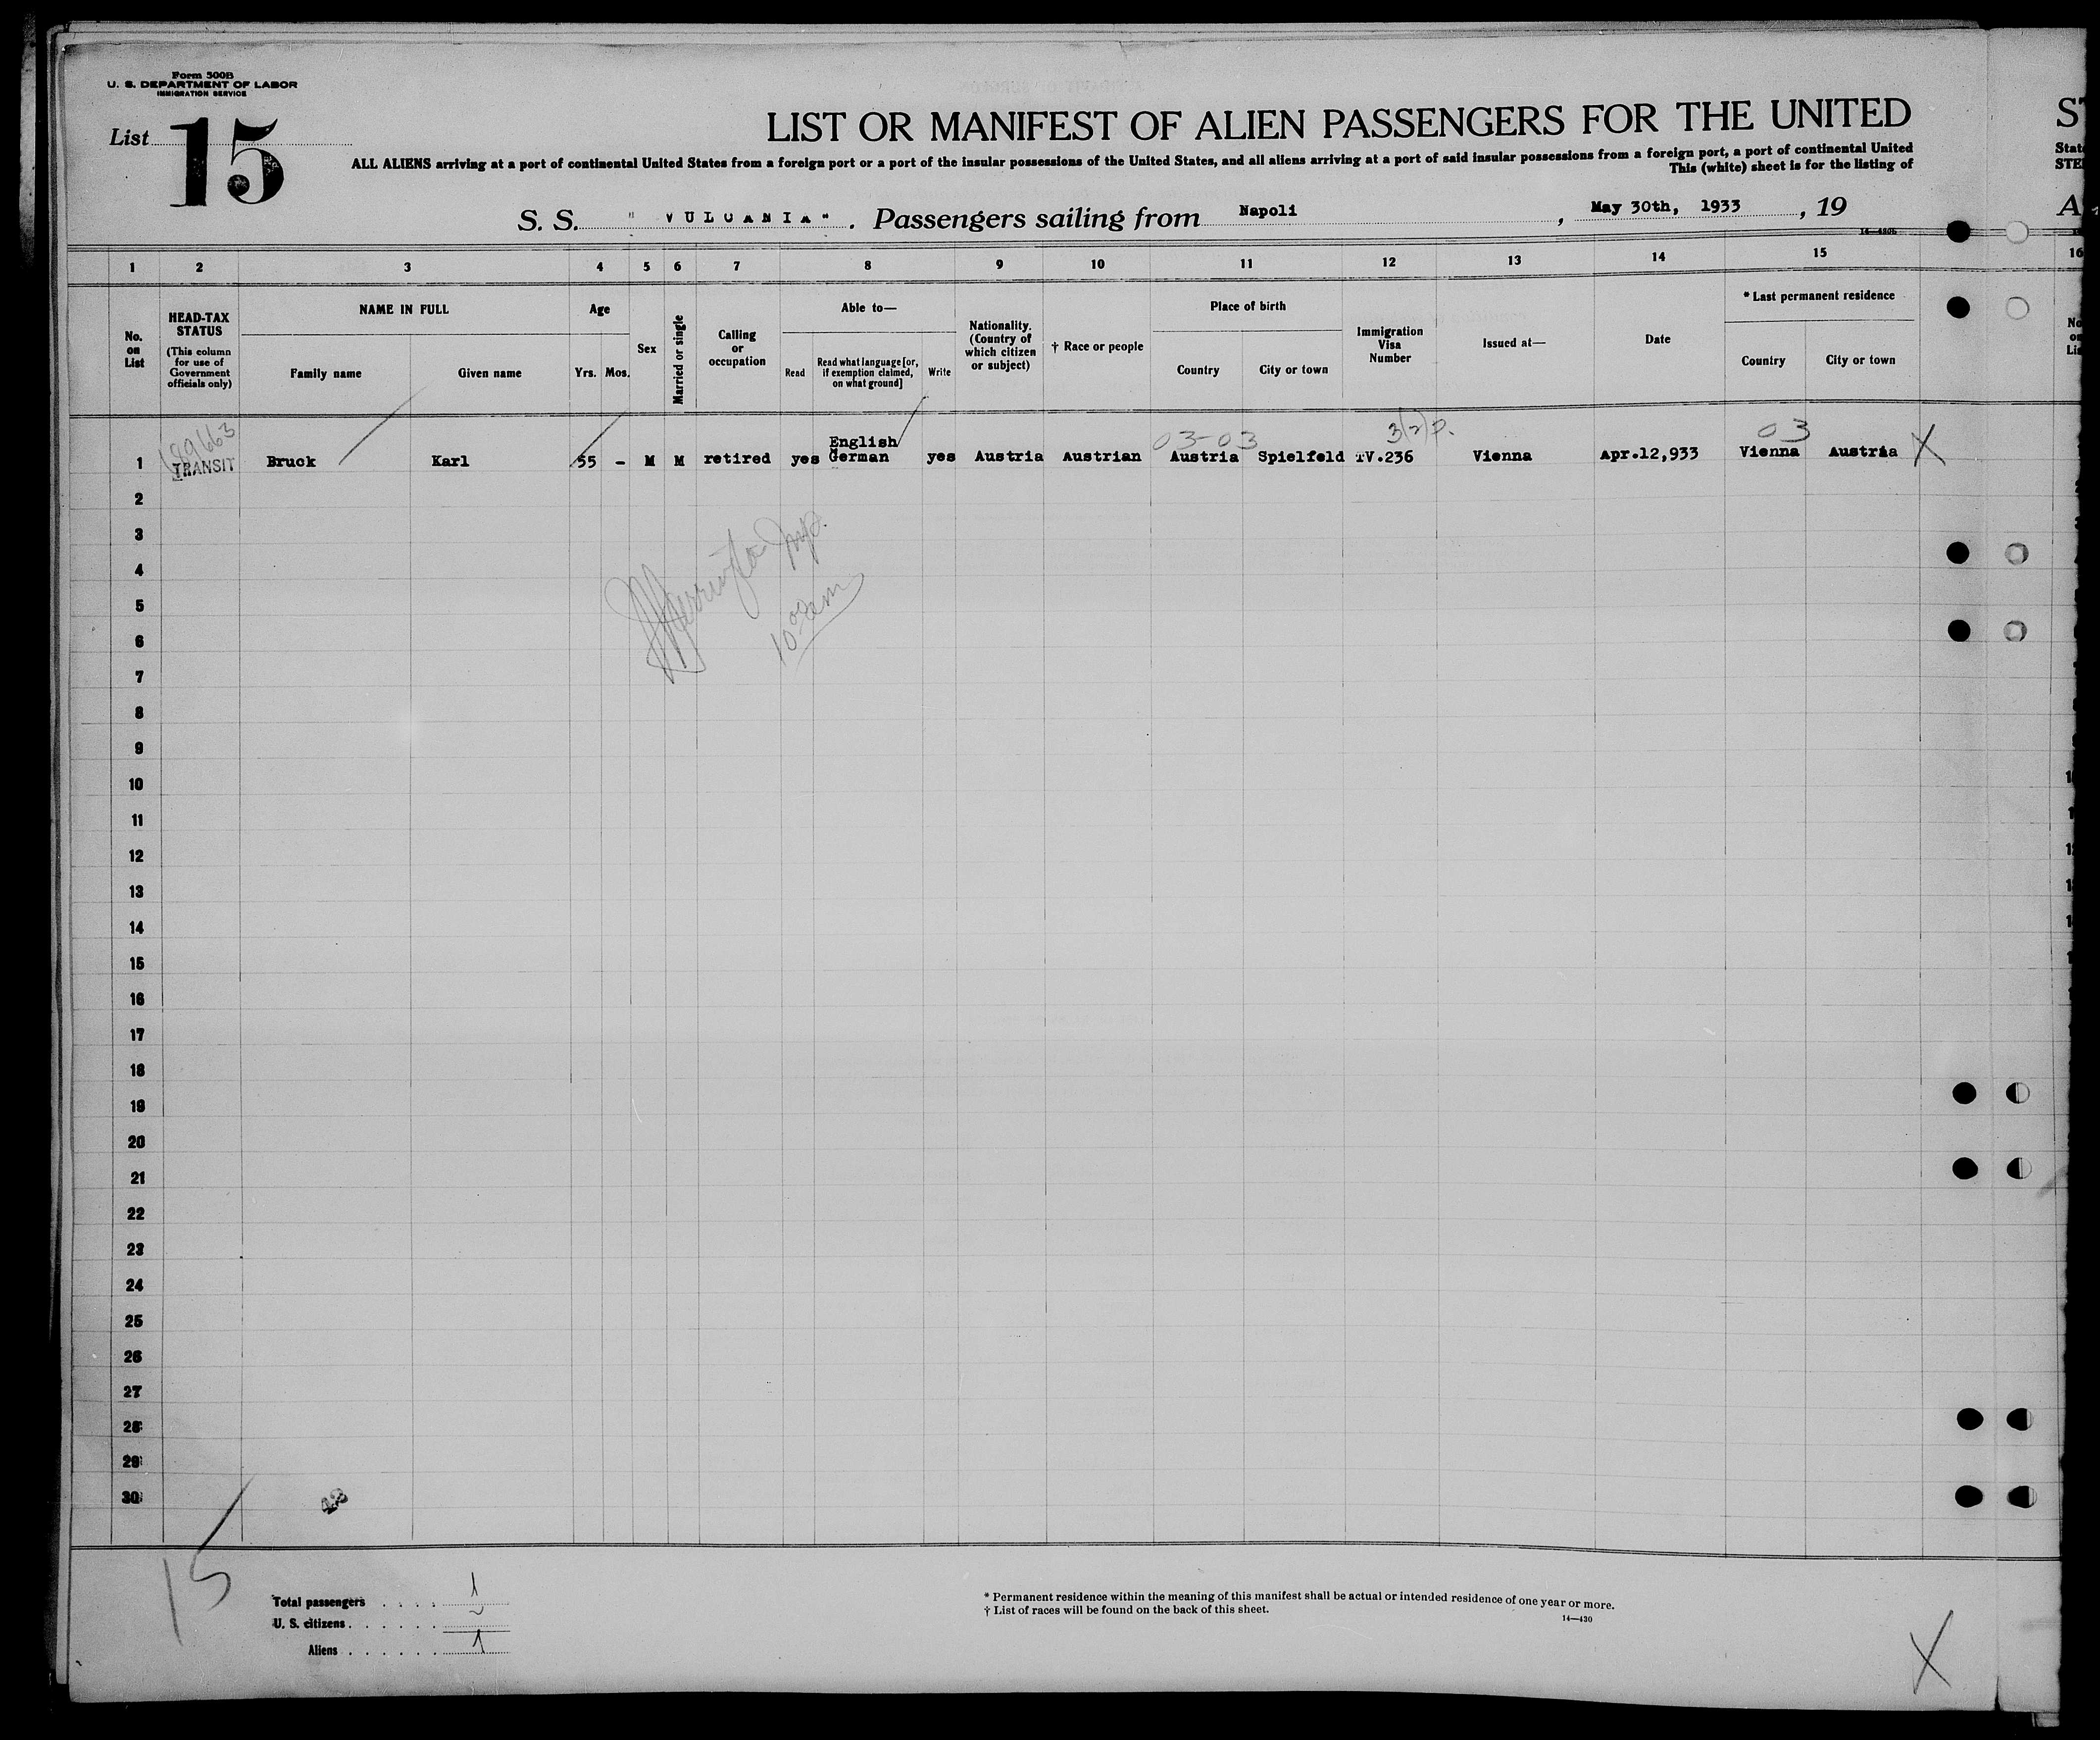 Form 500B
U. S. DEPARTMENT OF LABOR
IMMIGRATION SERVICE
List 15
LIST OR MANIFEST OF ALIEN PASSENGERS FOR THE UNITED
ALL ALIENS arriving at a port of continental United States from a foreign port or a port of the insular possessions of the United States, and all aliens arriving at a port of said insular possessions from a foreign port, a port of continental United
This (white) sheet is for the listing of
S. S. " VULCANIA". Passengers sailing from Napoli, May 30th, 1933, 19
1 2 3 4 5 6 7 8 9 10 11 12 13 14 15 16
No. on List
HEAD-TAX STATUS
(This column for use of Government officials only)
NAME IN FULL
Family name Given name
Age
Yrs. Mos.
Sex
Married or single
Calling or occupation
Able to—
Read
Read what language [or, if exemption claimed, on what ground]
Write
Nationality. (Country of which citizen or subject)
† Race or people
Place of birth
Country City or town
Immigration Visa Number
Issued at—
Date
* Last permanent residence
Country City or town
189663 03-03 3(2)P. 03
English
1 TRANSIT Bruck Karl 55 - M M retired yes German yes Austria Austrian Austria Spielfeld TV.236 Vienna Apr.12,933 Vienna Austria X
2
3
4
5
6
7
8
9
10
11
12
13
14
15
16
17
18
19
20
21
22
23
24
25
26
27
28
29
30
10 00 am
15
Total passengers . . . . 1
U. S. citizens . . . . . .
Aliens . . . . . . 1
* Permanent residence within the meaning of this manifest shall be actual or intended residence of one year or more.
† List of races will be found on the back of this sheet.
14—430
X